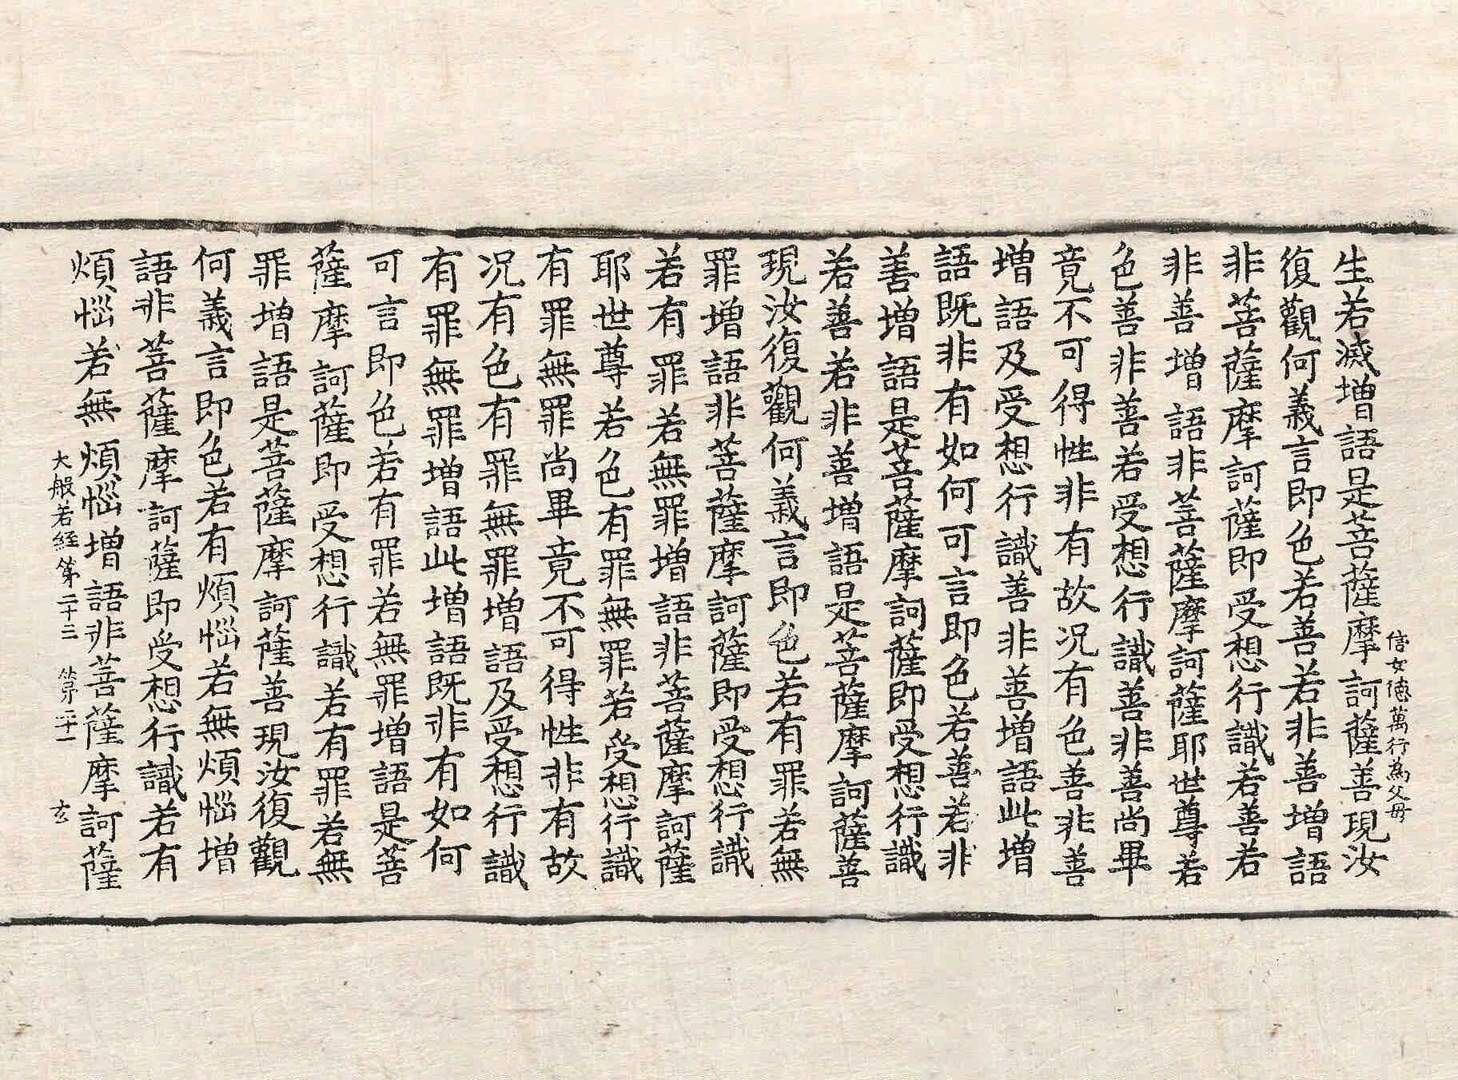 信女德萬行為父母
生若滅增語是菩薩摩訶薩善現汝
復觀何義言即色若善若非善增語
非菩薩摩訶薩即受想行識若善若
非善增語非菩薩摩訶薩耶世尊若
色善非善若受想行識善非善尚畢
竟不可得性非有故况有色善非善
增語及受想行識善非善增語此增
語既非有如何可言即色若善若非
善增語是菩薩摩訶薩即受想行識
若善若非善增語是菩薩摩訶薩善
現汝復觀何義言即色若有罪若無
罪增語非菩薩摩訶薩即受想行識
若有罪若無罪增語非菩薩摩訶薩
耶世尊若色有罪無罪若受想行識
有罪無罪尚畢竟不可得性非有故
况有色有罪無罪增語及受想行識
有罪無罪增語此增語既非有如何
可言即色若有罪若無罪增語是菩
薩摩訶薩即受想行識若有罪若無
罪增語是菩薩摩訶薩善現汝復觀
何義言即色若有煩惱若無煩惱增
語非菩薩摩訶薩即受想行識若有
煩惱若無煩惱增語非菩薩摩訶薩
大般若經第二十三 第二十一 玄